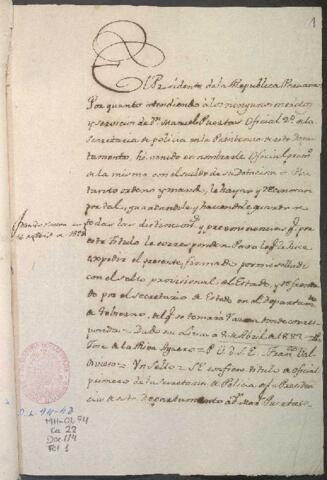 1
El Presidente de la Republica Peruana
Por quanto atendiendo á los meritos
y servicios de Dn Manuel Puertas Oficial 2º de la
Secretaria de policia en la Presidencia de este Depar
tamento, he venido en nombrarle Oficial prim.º
de la misma con el sueldo de su dotacion. Por
tanto ordeno y mando, le hayan y reconozcan
por tal, guardandole y haciendole guardar to
das las distinciones y preeminencias qe por
este Titulo le corresponden. Para lo qe le hice
expedir el presente, firmado por mi, sellado
con el sello provisional del Estado, y refrenda
do por el Secretario de Estado en el departam.to
de Gobierno, del qe se tomará razon donde corres
ponda. Dado en Lima á de Abril de 1823
Jose de la Riva Aguero = P. O. de S. E. Franco Val
divieso = Un Sello = S.E. confiere titulo de oficial
primero de la Secretaria de Policia de la Presiden
cia de este departamento á Dn Manl Puertas
O.L. 94-42
MH-OL 94
Ca. 22
Doc 114
Fol 1